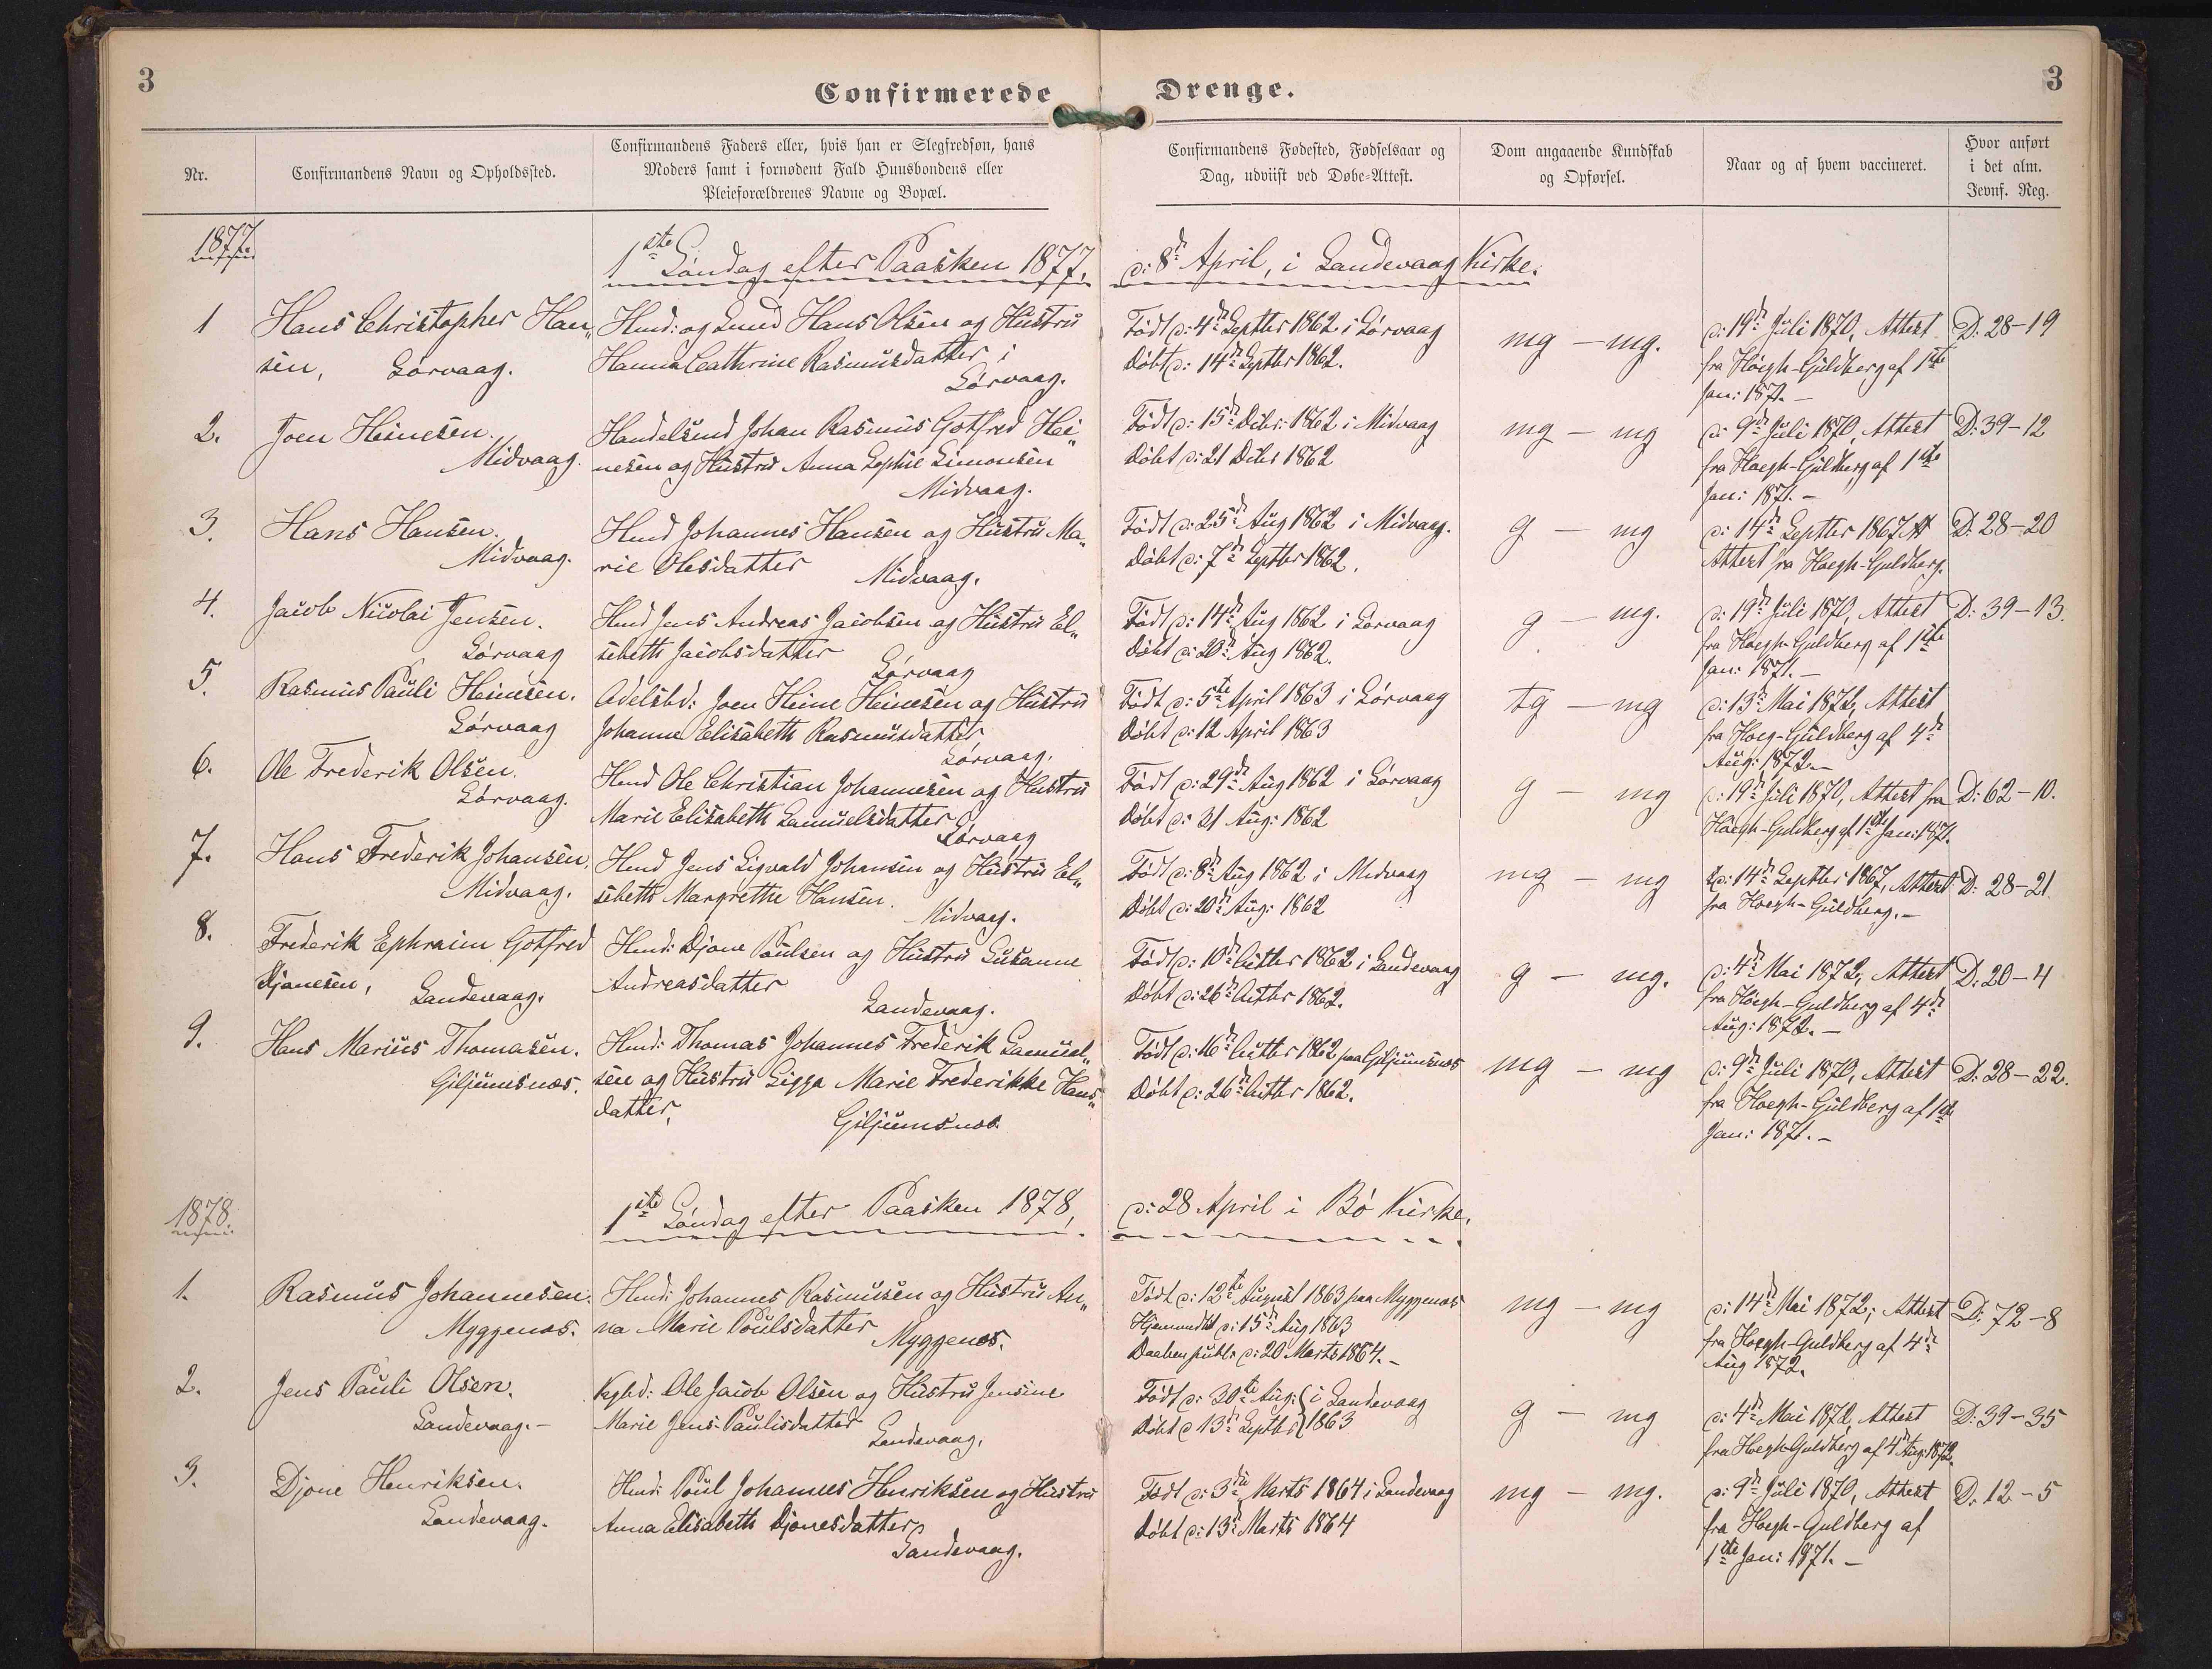 3
Confirmerede Drenge.
3
Nr.
Confirmandens Navn og Opholdssted.
Confirmandens Faders eller, hvis han er Slegfredsøn, hans
Moders samt i fornødent Fald Huusbondens eller
Pleieforældrenes Navne og Bopæl.
Confirmandens Fødested, Fødselsaar og
Dag, udviist ved Døbe-Attest.
Dom angaaende Kundskab
og Opførsel.
Naar og af hvem vaccineret.
Hvor anført
i det alm.
Jevnf. Reg.
1877.
1ste Søndag efter Paasken 1877, d: 8d April, i Sandevaag Kirke.
1
Hans Christopher Han„
sen, Sørvaag.
Hmd: og Smed Hans Olsen og Hustru
Hanna Cathrine Rasmusdatter i
Sørvaag.
Født d: 4d Septbr 1862 i Sørvaag
Døbt d: 14d Septbr 1862.
mg – mg.
d: 19d Juli 1870, Attest
fra Høegh-Guldberg af 1ste
Jan: 1871. –
D: 28–19
2.
Joen Heinesen.
Midvaag.
Handelsmd Johan Rasmus Gotfred Hei„
nesen og Hustru Anna Sophie Simonsen
Midvaag.
Født d: 15d Debr: 1862 i Midvaag
Døbt d: 21 Debr 1862
mg – mg
d: 9d Juli 1870, Attest
fra Høegh-Guldberg af 1ste
Jan: 1871. –
D: 39–12
3.
Hans Hansen.
Midvaag.
Hmd Johannes Hansen og Hustru Ma„
rie Olesdatter Midvaag.
Født d: 25d Aug 1862 i Midvaag.
Døbt d: 7d Septbr 1862.
g – mg
d: 14d Septbr 1867
Attest fra Høegh-Guldberg.
D: 28–20
4.
Jacob Nicolai Jensen.
Sørvaag
Hmd Jens Andreas Jacobsen og Hustru El„
sebeth Jacobsdatter
Sørvaag
Født d: 14d Aug 1862 i Sørvaag
Døbt d: 20d Aug 1862.
g – mg.
d: 19d Juli 1870, Attest
fra Høegh-Guldberg af 1ste
Jan: 1871. –
D: 39–13.
5.
Rasmus Pauli Heinesen.
Sørvaag
Adelsbd: Joen Heine Heinesen og Hustru
Johanne Elisabeth Rasmusdatter
Sørvaag.
Født d: 5te April 1863 i Sørvaag
Døbt d: 12 April 1863
tg – mg
d: 13d Mai 1872, Attest
fra Høeg-Guldberg af 4d
Aug: 1872. –
6.
Ole Frederik Olsen.
Sørvaag.
Hmd Ole Christian Johannesen og Hustru
Marie Elisabeth Samuelsdatter
Sørvaag
Født d: 29d Aug 1862 i Sørvaag
Døbt d: 31 Aug: 1862
g – mg
d: 19d Juli 1870, Attest fra
Høegh-Guldberg af 1ste Jan: 1871.
D: 62–10.
7.
Hans Frederik Johansen,
Midvaag.
Hmd Jens Sigvald Johansen og Hustru El„
sebeth Margrethe Hansen.
Midvaag.
Født d: 8d Aug 1862 i Midvaag
Døbt d: 20d Aug: 1862
mg – mg
d: 14d Septbr 1867, Attest
fra Høegh-Guldberg. –
D: 28–21.
8.
Frederik Ephraim Gotfred
Djonesen, Sandevaag.
Hmd: Djone Poulsen og Hustru Susanne
Andreasdatter
Sandevaag.
Født d: 10d Octbr 1862 i Sandevaag
Døbt d: 26d Octbr 1862.
g – mg.
d: 4d Mai 1872, Attest
fra Høegh-Guldberg af 4d
Aug: 1872. –
D: 20–4
9.
Hans Marius Thomasen.
Giljumsnæs.
Hmd: Thomas Johannes Frederik Samuel„
sen og Hustru Sigga Marie Frederikke Hans„
datter,
Giljumsnæs
Født d: 16d Octbr 1862 paa Giljumsnæs
Døbt d: 26d Octbr 1862.
mg – mg
d: 9d Juli 1870, Attest
fra Høegh-Guldberg af 1ste
Jan: 1871. –
D: 28–22.
1878.
1ste Søndag efter Paasken 1878, d: 28 April i Bø Kirke.
1.
Rasmus Johannesen.
Myggenæs.
Hmd: Johannes Rasmusen og Hustru An„
na Marie Poulsdatter
Myggenæs.
Født d: 12te August 1863 paa Myggenæs
Hjemmedbt d: 15d Aug 1863
Daaben publ: d: 20 Marts 1864. –
mg – mg
d: 14d Mai 1872, Attest
fra Høegh-Guldberg af 4d
Aug 1872.
D: 72–8
2.
Jens Pauli Olsen.
Sandevaag. –
Kgbd: Ole Jacob Olsen og Hustru Jensine
Marie Jens-Paulisdatter
Sandevaag.
Født d: 30te Aug: i Sandevaag
Døbt d 13d Septbr 1863
g – mg
d: 4d Mai 1872, Attest
fra Høegh-Guldberg af 4d Aug: 1872.
D: 39–35
3.
Djone Henriksen.
Sandevaag.
Hmd: Poul Johannes Henriksen og Hustru
Anna Elisabeth Djonesdatter
Sandevaag.
Født d: 3die Marts 1864 i Sandevaag
Døbt d: 13d Marts 1864
mg – mg.
d: 9d Juli 1870, Attest
fra Høegh-Guldberg af
1ste Jan: 1871. –
D. 12–5